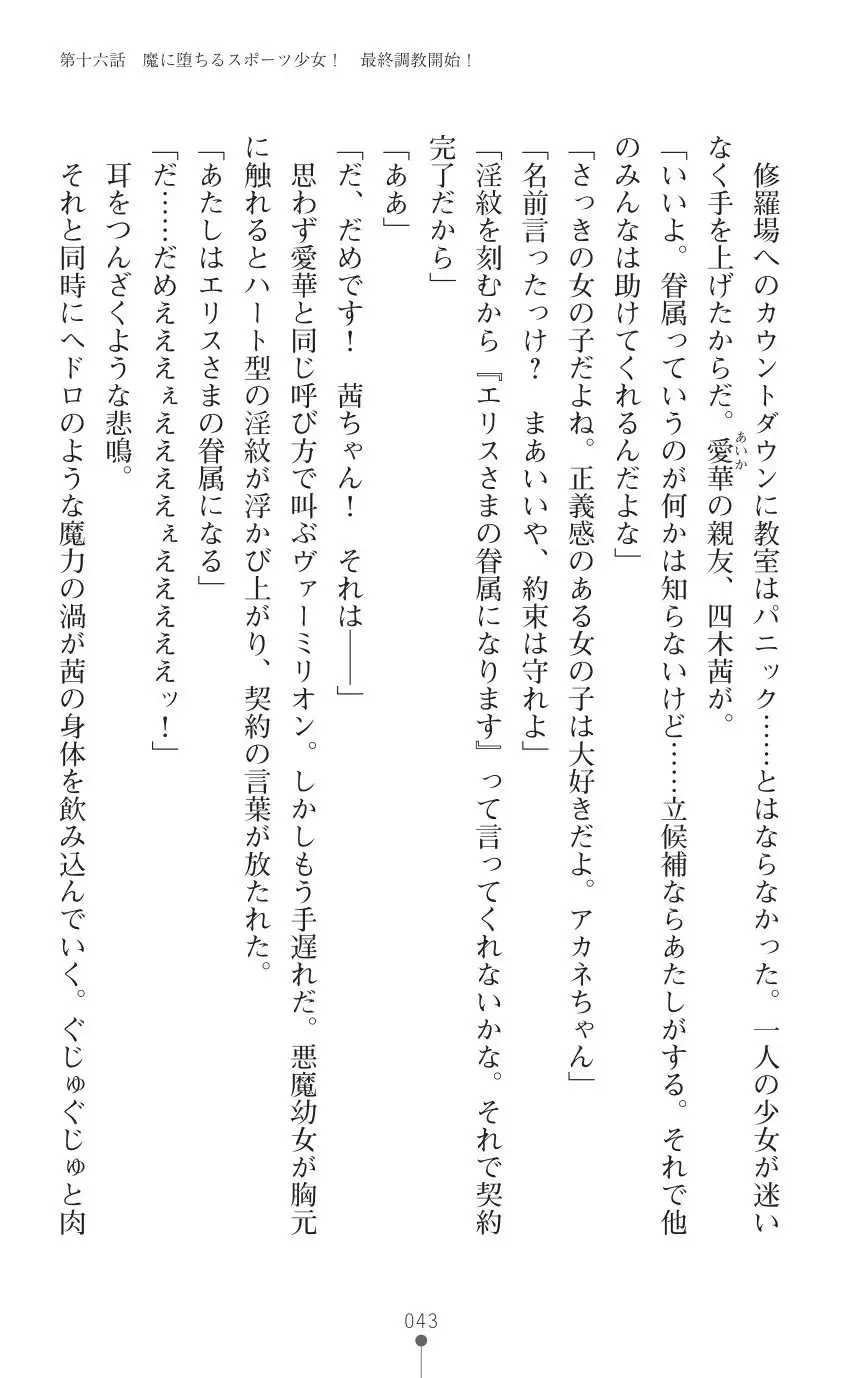 第十六話　魔に堕ちるスポーツ少女！　最終調教開始！
　修羅場へのカウントダウンに教室はパニック……とはならなかった。一人の少女が迷い
なく手を上げたからだ。愛華の親友、四木茜が。
あいか
「いいよ。眷属っていうのが何かは知らないけど……立候補ならあたしがする。それで他
のみんなは助けてくれるんだよな」
「さっきの女の子だよね。正義感のある女の子は大好きだよ。アカネちゃん」
「名前言ったっけ？　まあいいや、約束は守れよ」
「淫紋を刻むから『エリスさまの眷属になります』って言ってくれないかな。それで契約
完了だから」
「ああ」
「だ、だめです！　茜ちゃん！　それは――」
　思わず愛華と同じ呼び方で叫ぶヴァーミリオン。しかしもう手遅れだ。悪魔幼女が胸元
に触れるとハート型の淫紋が浮かび上がり、契約の言葉が放たれた。
「あたしはエリスさまの眷属になる」
「だ……だめえええぇえええええぇえええええッ！」
　耳をつんざくような悲鳴。
　それと同時にヘドロのような魔力の渦が茜の身体を飲み込んでいく。ぐじゅぐじゅと肉
043